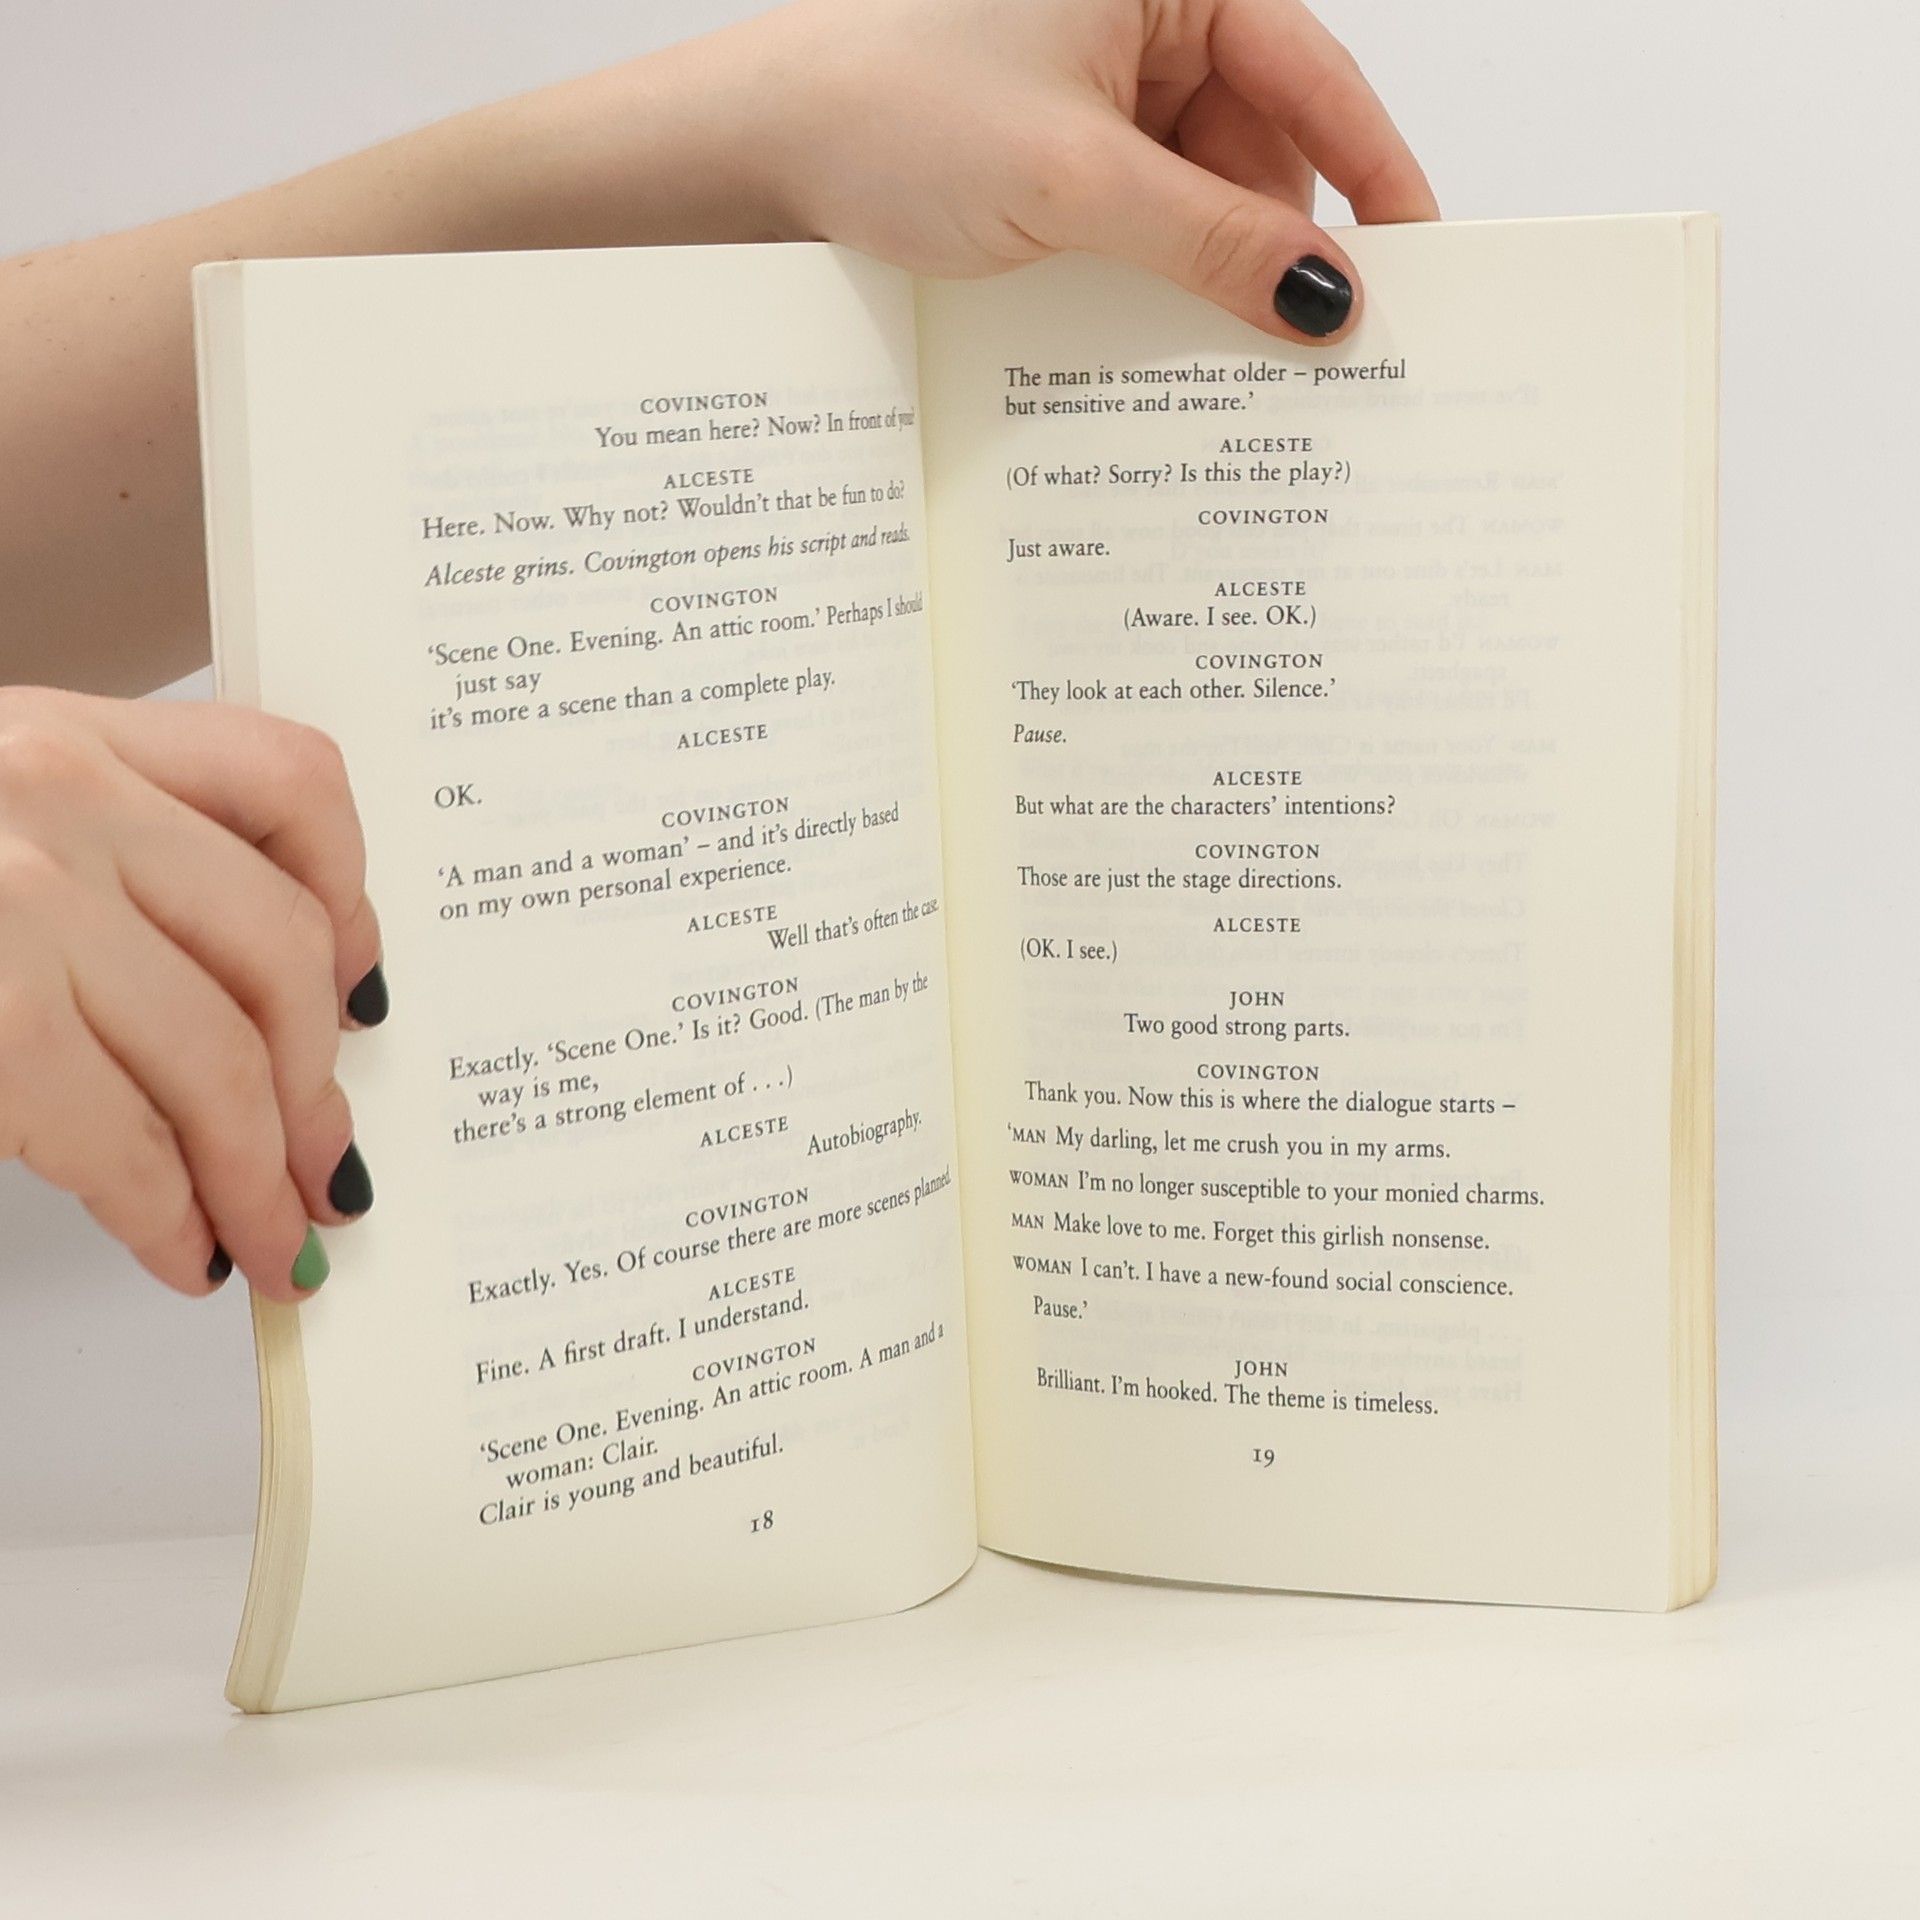 COVINGTON
You mean here? Now? In front of you?
ALCESTE
Here. Now. Why not? Wouldn't that be fun to do?
Alceste grins. Covington opens his script and reads.
COVINGTON
‘Scene One. Evening. An attic room.’ Perhaps I should
just say
it's more a scene than a complete play.
ALCESTE
OK.
COVINGTON
‘A man and a woman’ – and it's directly based
on my own personal experience.
ALCESTE
Well that's often the case.
COVINGTON
Exactly. ‘Scene One.’ Is it? Good. (The man by the
way is me,
there's a strong element of . . .)
ALCESTE
Autobiography.
COVINGTON
Exactly. Yes. Of course there are more scenes planned.
ALCESTE
Fine. A first draft. I understand.
COVINGTON
‘Scene One. Evening. An attic room. A man and a
woman: Clair.
Clair is young and beautiful.
18
The man is somewhat older – powerful
but sensitive and aware.’
ALCESTE
(Of what? Sorry? Is this the play?)
COVINGTON
Just aware.
ALCESTE
(Aware. I see. OK.)
COVINGTON
‘They look at each other. Silence.’
Pause.
ALCESTE
But what are the characters' intentions?
COVINGTON
Those are just the stage directions.
ALCESTE
(OK. I see.)
JOHN
Two good strong parts.
COVINGTON
Thank you. Now this is where the dialogue starts –
‘MAN My darling, let me crush you in my arms.
WOMAN I'm no longer susceptible to your monied charms.
MAN Make love to me. Forget this girlish nonsense.
WOMAN I can't. I have a new-found social conscience.
Pause.’
JOHN
Brilliant. I'm hooked. The theme is timeless.
19